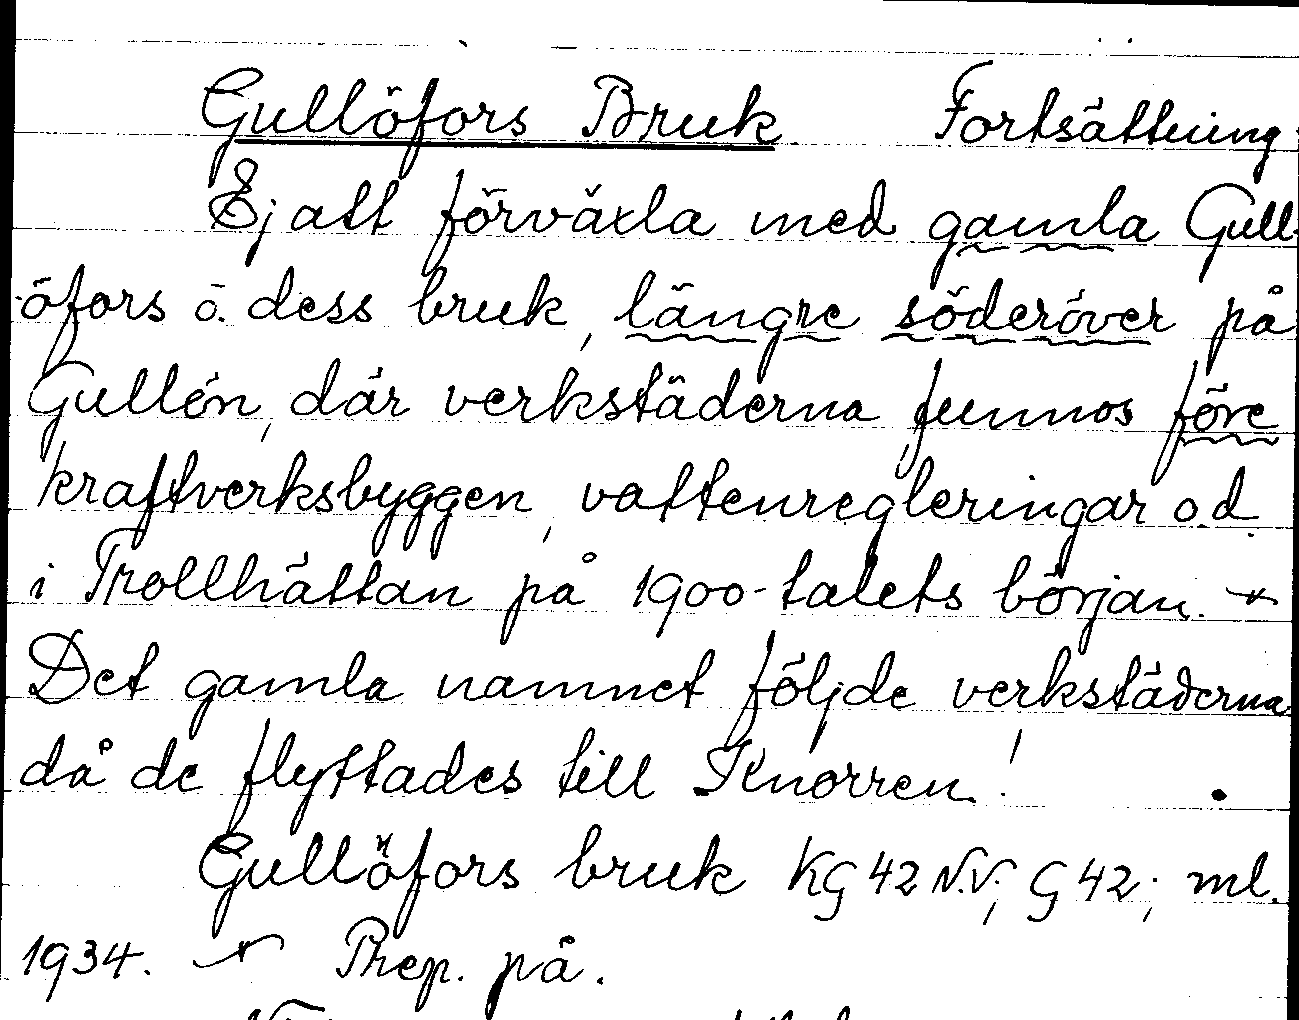 Gullöfors Bruk. Fortsättning.
Ej att förväxla med gamla Gull-
öfors o. dess bruk, längre söderöver på
Gullön, där verkstäderna funnos före
kraftverksbyggen, vattenregleringar o.d.
i Trollhättan på 1900-talets början.
Det gamla namnet följde verkstäderna
då de flyttades till Knorren!
Gullöfors bruk KG 42 N.V.; G 42; ml.
1934. Prep. på.